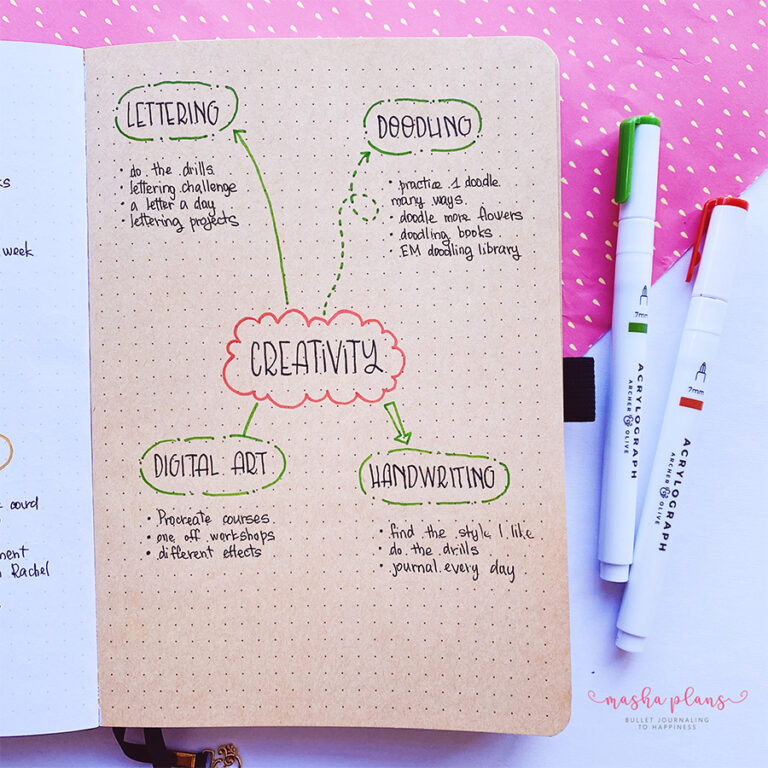 LETTERING
• do the drills
• lettering challenge
• a letter a day
• lettering projects
DOODLING
• practize 1 doodle
many ways
• doodle more flowers
• doodling books
• EM doodling library
CREATIVITY
DIGITAL ART
• Procreate courses
• one off workshops
• different effects
HANDWRITING
• find the style I like
• do the drills
• journal every day
week
Rachel
7mm
ACRYLOGRAPH
ARCHER & OLIVE
7mm
ACRYLOGRAPH
ARCHER & OLIVE
masha plans
BULLET JOURNALING
TO HAPPINESS